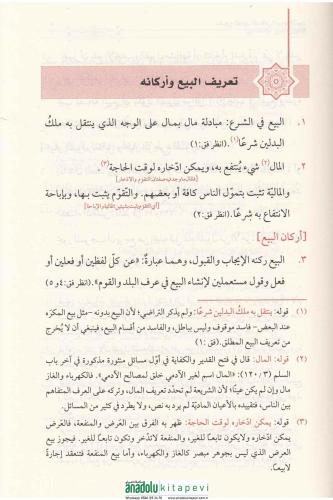 تعريف البيع وأركانه
١. البيع في الشرع: مبادلة مال بمال على الوجه الذي ينتقل به ملكُ
البدلين شرعًا(١). (انظر فق:١)
٢. المال(٢) شيء يُنتفع به، ويمكن ادّخاره لوقت الحاجة(٣)
والماليّة تثبت بتموّل الناس كافة أو بعضهم. والتقوّم يثبت بها، وبإباحة
الانتفاع به شرعًا. (انظر فق:٢)
[أركان البيع]
٣. البيع ركنه الإيجاب والقبول، وهما عبارة: «عن كلّ لفظين أو فعلين أو
فعل وقول مستعملين لإنشاء البيع في عرف البلد والقوم». (انظر فق:٤ و٥)
(١) قوله: ينتقل به ملك البدلين شرعًا: ولم يذكر التراضي؛ لأن البيع بدونه - مثل بيع المكرَه
عند البعض - فاسد موقوف وليس بباطل، والفاسد من أقسام البيع، فينبغي أن لا يُخرج
من تعريف البيع المطلق. (فق:١)
(٢) قوله: المال: قال في فتح القدير والكفاية في أوّل مسائل منثورة مذكورة في آخر باب
السلم (١٢٠/٣): «المال اسم لغير الآدمي خلق لمصالح الآدمي». فالكهرباء والغاز
مال وإن لم يكن عينًا؛ لأن الشريعة لم تحدّد تعريف المال، وتركه على العرف المتفاهم
بين الناس، فتقييده بالأعيان الماديّة لم يرد به نص، ولا يطرد في كثير من المسائل.
(٣) قوله: يمكن ادّخاره لوقت الحاجة: ظهر به الفرق بين العَرَض والمنفعة، فالعَرَض
يمكن ادّخاره ولايكون تابعًا للغير، والمنفعة لاتدّخر وتكون تابعًا للغير. فيجوز بيع
العرض الذي ليس بجوهر مبصر كالغاز والكهرباء، وأما بيع المنفعة فتنعقد إجارةً
لابيعًا.
anadolukitapevi